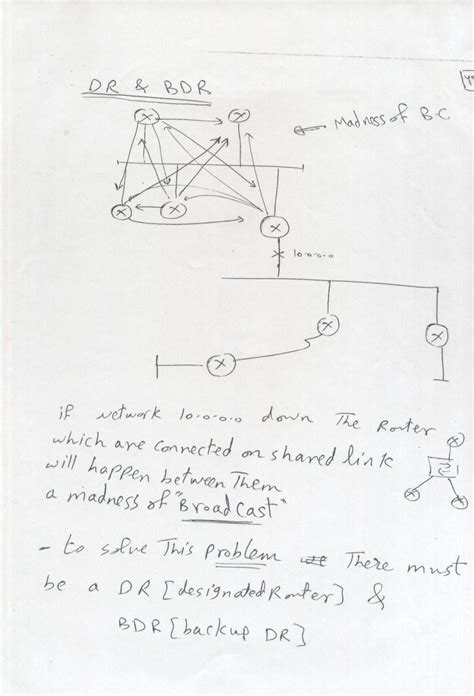 DR & BDR
Madness of B.C
10.0.0.0
if network 10.0.0.0 down The Router
which are connected on shared link
will happen between Them
a madness of "Broad Cast"
- to solve This problem There must
be a DR [designated Router] &
BDR [backup DR]